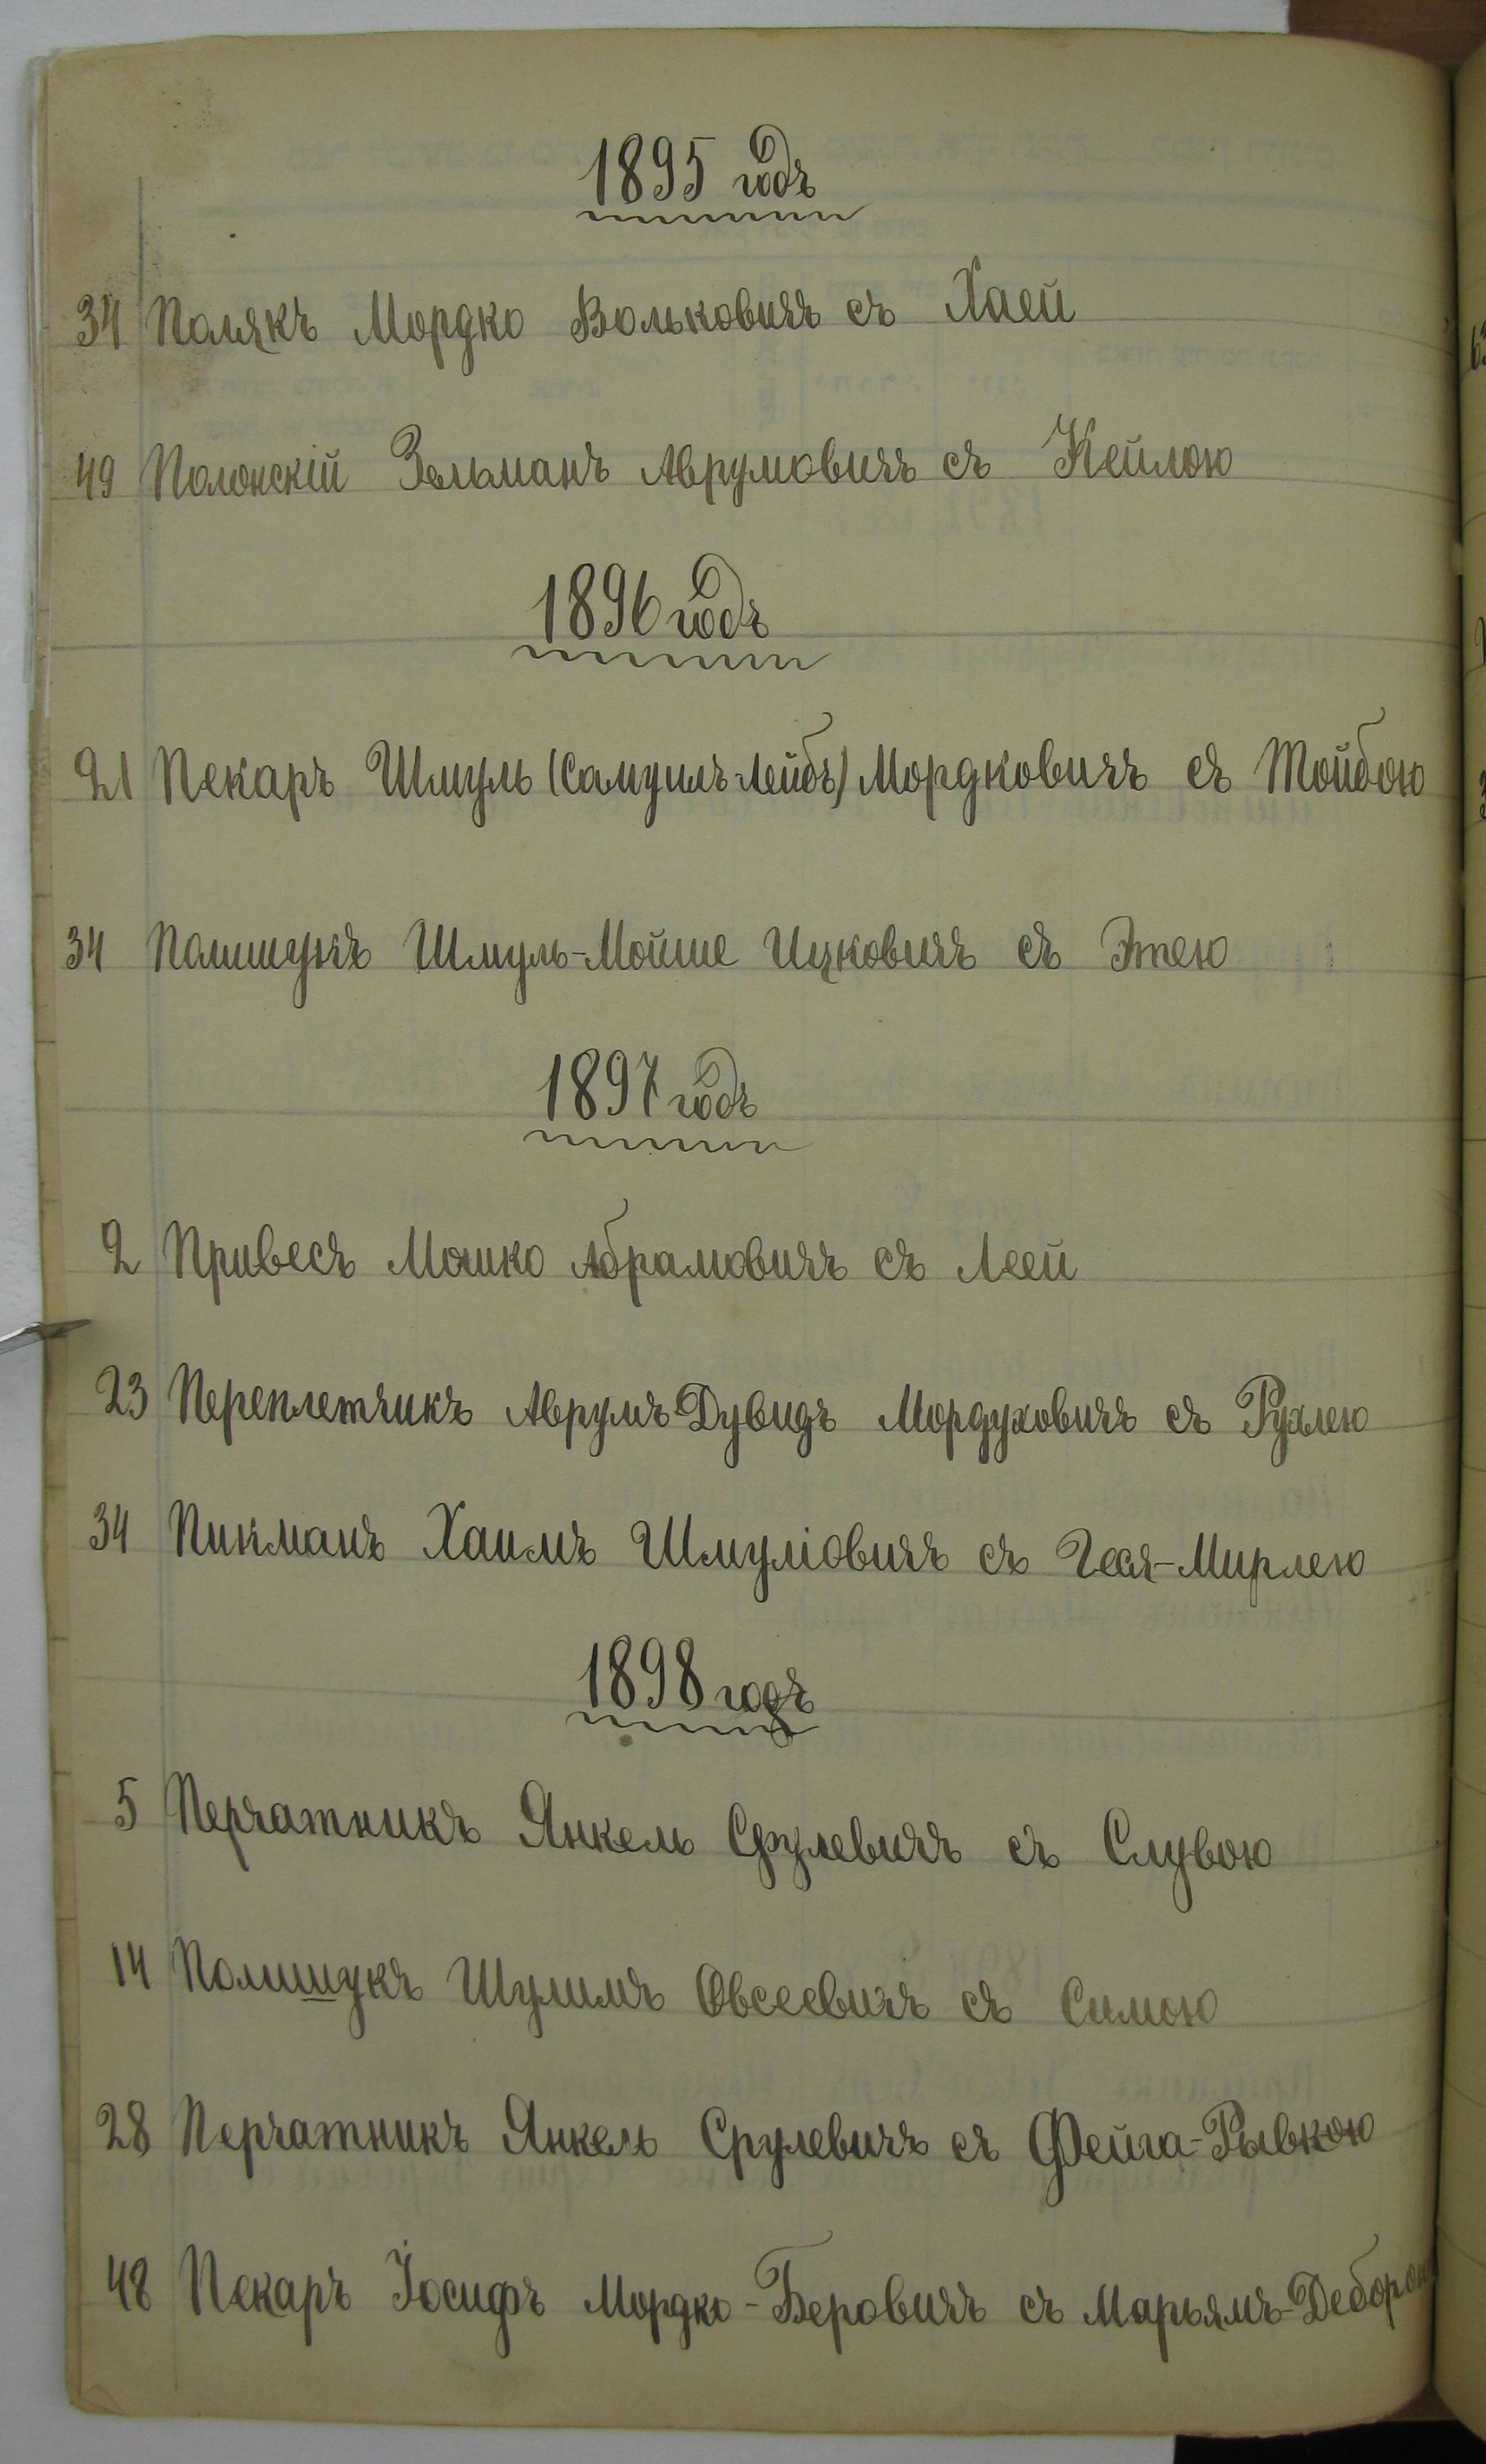 1895 годъ
34 Полякъ Мордко Вольковичъ съ Хаей
49 Полонскій Зельманъ Аврумовичъ съ Кейлою
1896 годъ
21 Пекаръ Шмуль (Самуилъ-Лейбъ) Мордковичъ съ Тойбою
34 Полишукъ Шмуль-Мойше Ицковичъ съ Этею
1897 годъ
2 Привесъ Мошко Абрамовичъ съ Леей
23 Переплетчикъ Аврумъ-Дувидъ Мордуховичъ съ Рухлею
34 Пикманъ Хаимъ Шмуліовичъ съ Геся-Мирлею
1898 годъ
5 Перчатникъ Янкель Срулевичъ съ Слувою
14 Полишукъ Шулимъ Овсеевичъ съ Симою
28 Перчатникъ Янкель Срулевичъ съ Фейга-Рывкою
48 Пекаръ Іосифъ Мордко-Беровичъ съ Марьямъ-Деборою